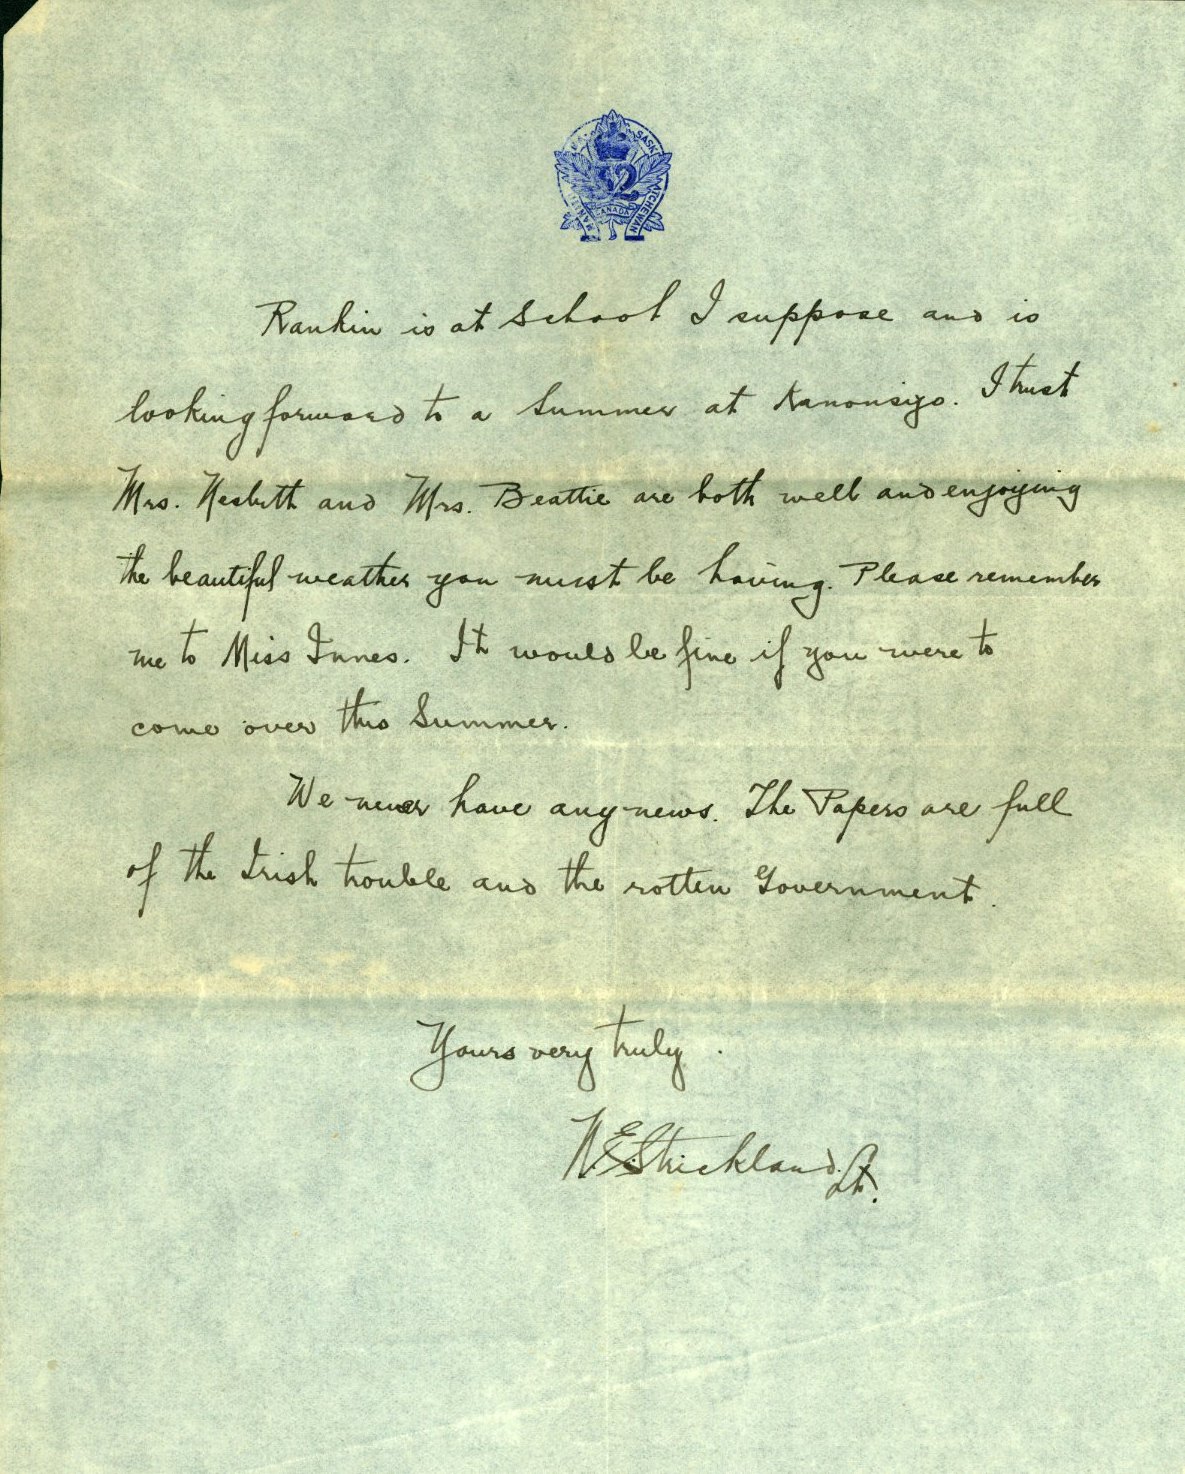 MANITOBA SASKATCHEWAN
32
CANADA
Rankin is at School I suppose and is
looking forward to a Summer at Kanonsiyo. I trust
Mrs. Nesbitt and Mrs. Beattie are both well and enjoying
the beautiful weather you must be having. Please remember
me to Miss Innes. It would be fine if you were to
come over this Summer.
We never have any news. The Papers are full
of the Irish trouble and the rotten Government.
Yours very truly.
Strickland. Lt.